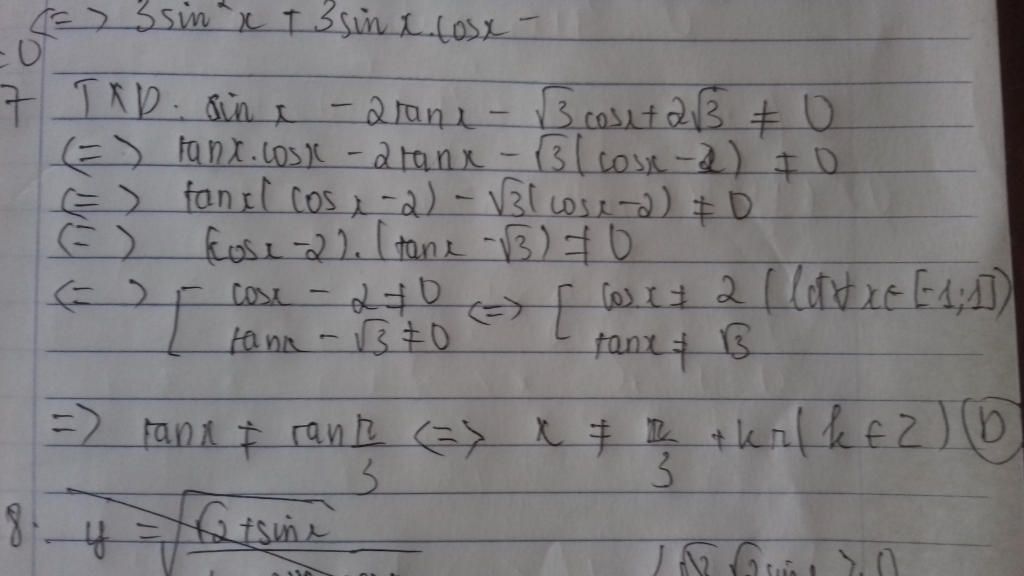 <=> 3sin²x + 3sinx.cosx -
=0
7 TXD: sin x - 2tanx - √3cosx + 2√3 ≠ 0
<=> tanx.cosx - 2tanx - √3(cosx - 2) ≠ 0
<=> tanx(cosx - 2) - √3(cosx - 2) ≠ 0
<=> (cosx - 2).(tanx - √3) ≠ 0
<=> [ cosx - 2 ≠ 0 <=> [ cosx ≠ 2 ( x ∈ [-1;1])
tanx - √3 ≠ 0 tanx ≠ √3
=> tanx ≠ tan π/3 <=> x ≠ π/3 + kπ (k ∈ Z) (D)
8. y = √(√2 + sinx